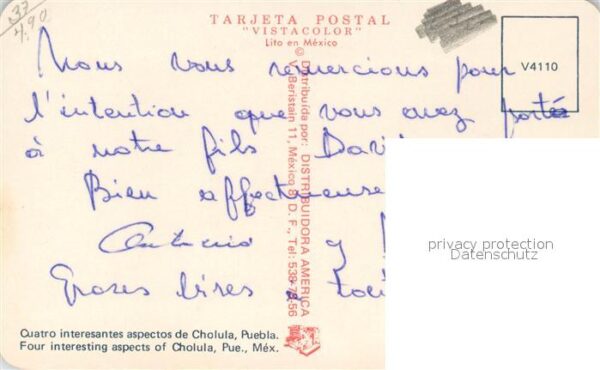 37
4.90
TARJETA POSTAL
"VISTACOLOR"
Lito en México
V4110
Nous vous remercions pour
l'intention que vous avez portée
à notre fils David
Bien affectueuse
Antonio y
Groses bises
© Distribuída por: DISTRIBUIDORA AMERICA
V. Beristain 11, México 8, D. F., Tel: 538-76-56
privacy protection
Datenschutz
Cuatro interesantes aspectos de Cholula, Puebla.
Four interesting aspects of Cholula, Pue., Méx.